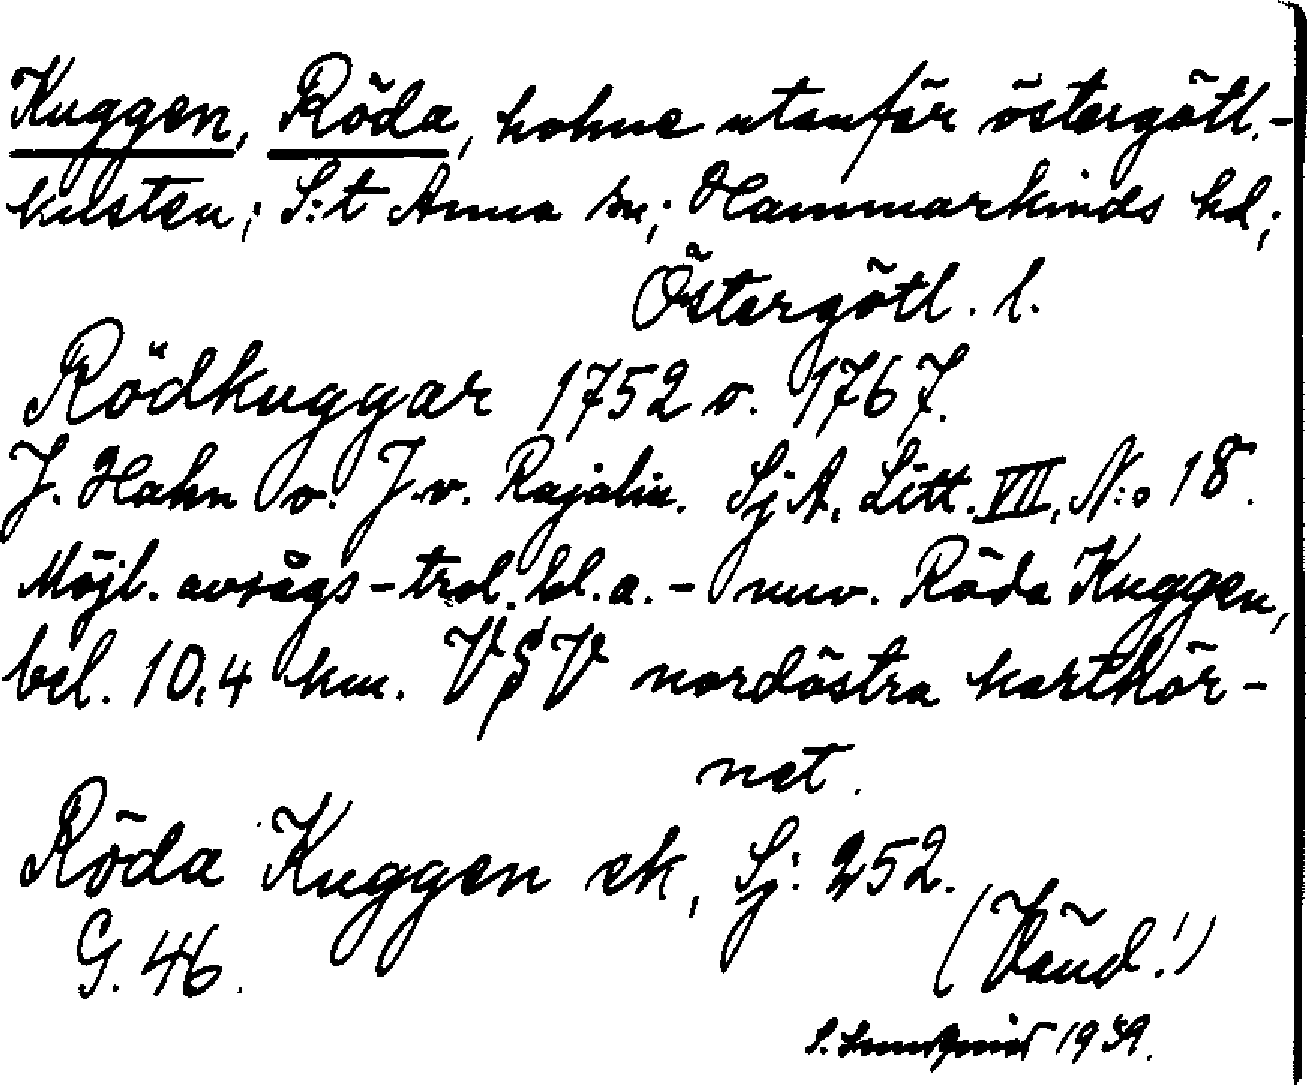 Kuggen, Röda, holme utanför östergötl.-
kusten; S:t Anna sn; Hammarkinds hd;
Östergötl. l.
Rödkuggar 1752 o. 1767.
J. Hahn o. J.v. Rajalin. Sj.A. Litt. VII, N:o 18.
Möjl. avsågs - trol. bl.a. - nuv. Röda Kuggen,
bel. 10,4 km. VSV nordöstra karthör-
net.
Röda Kuggen ek, Sj: 252.
G. 46.
(Vänd!)
S. 1939.